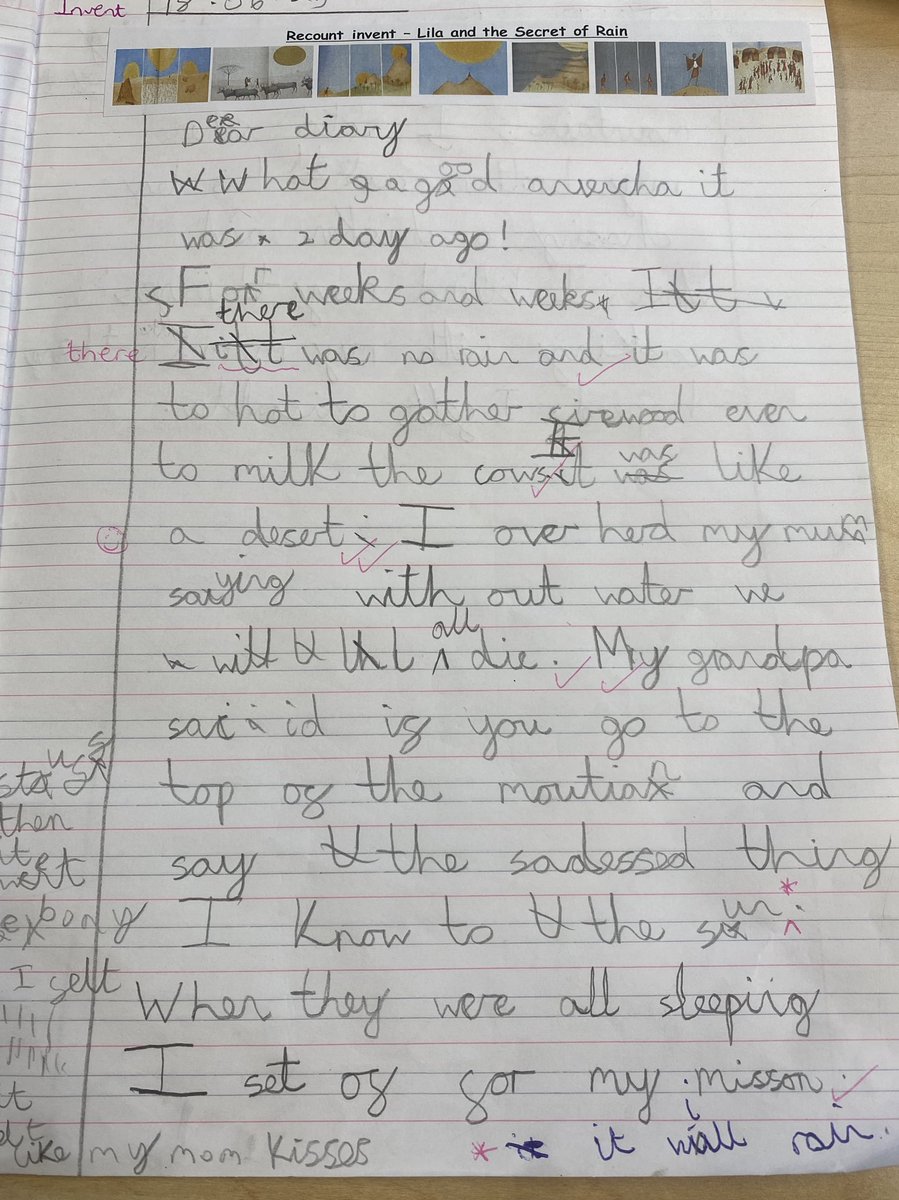 Invent
Recount invent – Lila and the Secret of Rain
Deear diary
What a good avercha it
was 2 day ago!
For weeks and weeks
there there was no rain and it was
to hot to gather firewood ever
to milk the cows It was like
a desert. I over herd my mum
saying with out water we
will all die. My grandpa
said if you go to the
top of the moutian and
say the sadessed thing
I know to the sun *
When they were all sleepiig
I set of for my misson.
like my mom kisses * it will rain.
then
I felt